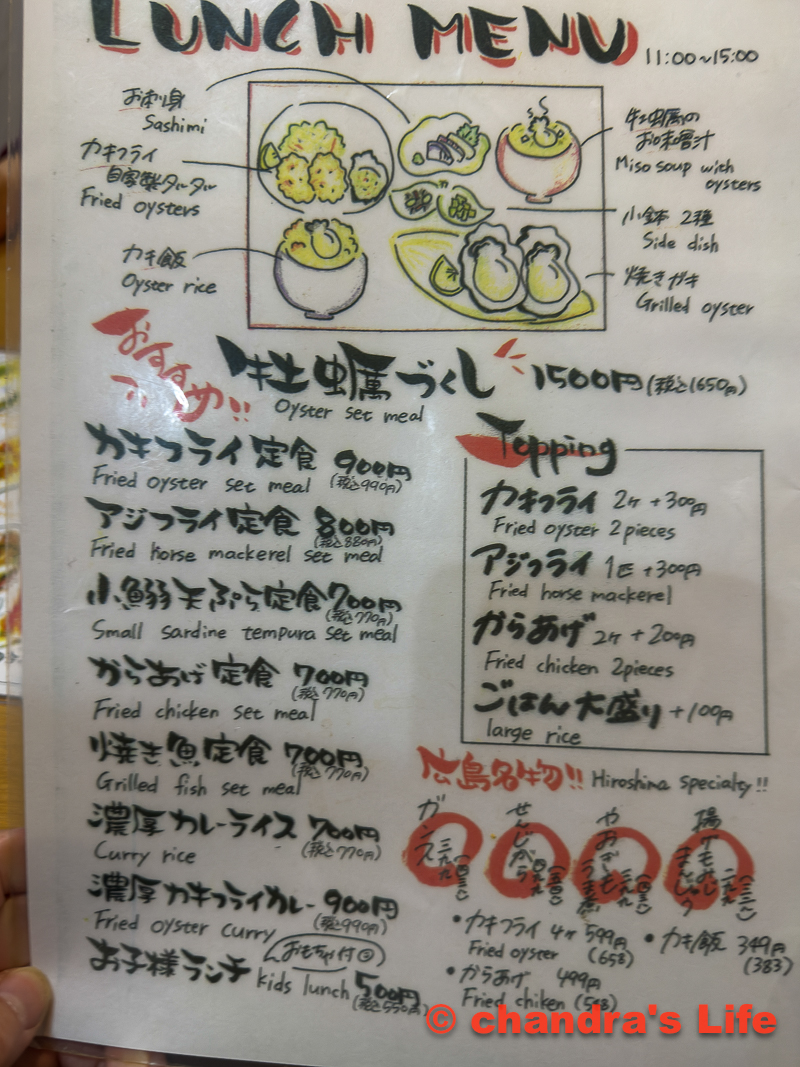 LUNCH MENU 11:00~15:00
お刺身
Sashimi
カキフライ
自家製タータ
Fried oysters
カキ飯
Oyster rice
牡蛎の
お味噌汁
Miso soup with
oysters
小鉢 2種
Side dish
焼きガキ
Grilled oyster
おすすめ!!
牡蛎づくし 1500円(税込1650円)
Oyster set meal
カキフライ定食 900円
Fried oyster set meal (税込990円)
アジフライ定食 800円
(税込880円)
Fried horse mackerel set meal
小鰯天ぷら定食 700円
(税込770円)
Small sardine tempura set meal
からあげ定食 700円
(税込770円)
Fried chicken set meal
焼き魚定食 700円
(税込770円)
Grilled fish set meal
濃厚カレーライス 700円
Curry rice (税込770円)
濃厚カキフライカレー 900円
(税込990円)
Fried oyster curry
おもちゃ付
お子様ランチ kids lunch 500円
(税込550円)
Topping
カキフライ 2ケ +300円
Fried oyster 2pieces
アジフライ 1匹 +300円
Fried horse mackerel
からあげ 2ケ +200円
Fried chicken 2pieces
ごはん大盛り +100円
large rice
広島名物!! Hiroshima specialty!!
ガンス
三九九
せんじがら
やおぎも
揚げもみじ
まんじゅう
・カキフライ 4ケ 599円
Fried oyster (658)
・からあげ 499円
Fried chiken
・カキ飯 349円
(383)
© chandra's Life